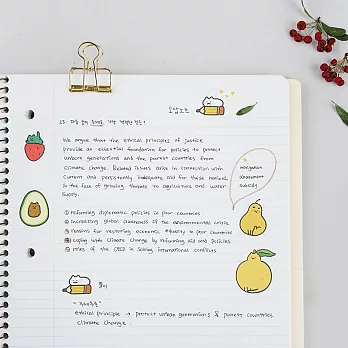 오답노트
23. 다음 글의 주제로 가장 적절한 것은?
We argue that the ethical principles of justice
provide an essential foundation for policies to protect
unborn generations and the poorest countries from
climate change. Related issues arise in connection with
current and persistently inadequate aid for these nations,
in the face of growing threats to agriculture and water
supply.
mitigation
abatement
subsidy
① reforming diplomatic policies in poor countries
② increasing global awareness of the environmental crisis
③ reasons for restoring economic equality in poor countries
④ coping with climate change by reforming aid and policies
⑤ roles of the in solving international conflicts
풀이
ethical principle → protect unborn generations & poorest countries
climate change